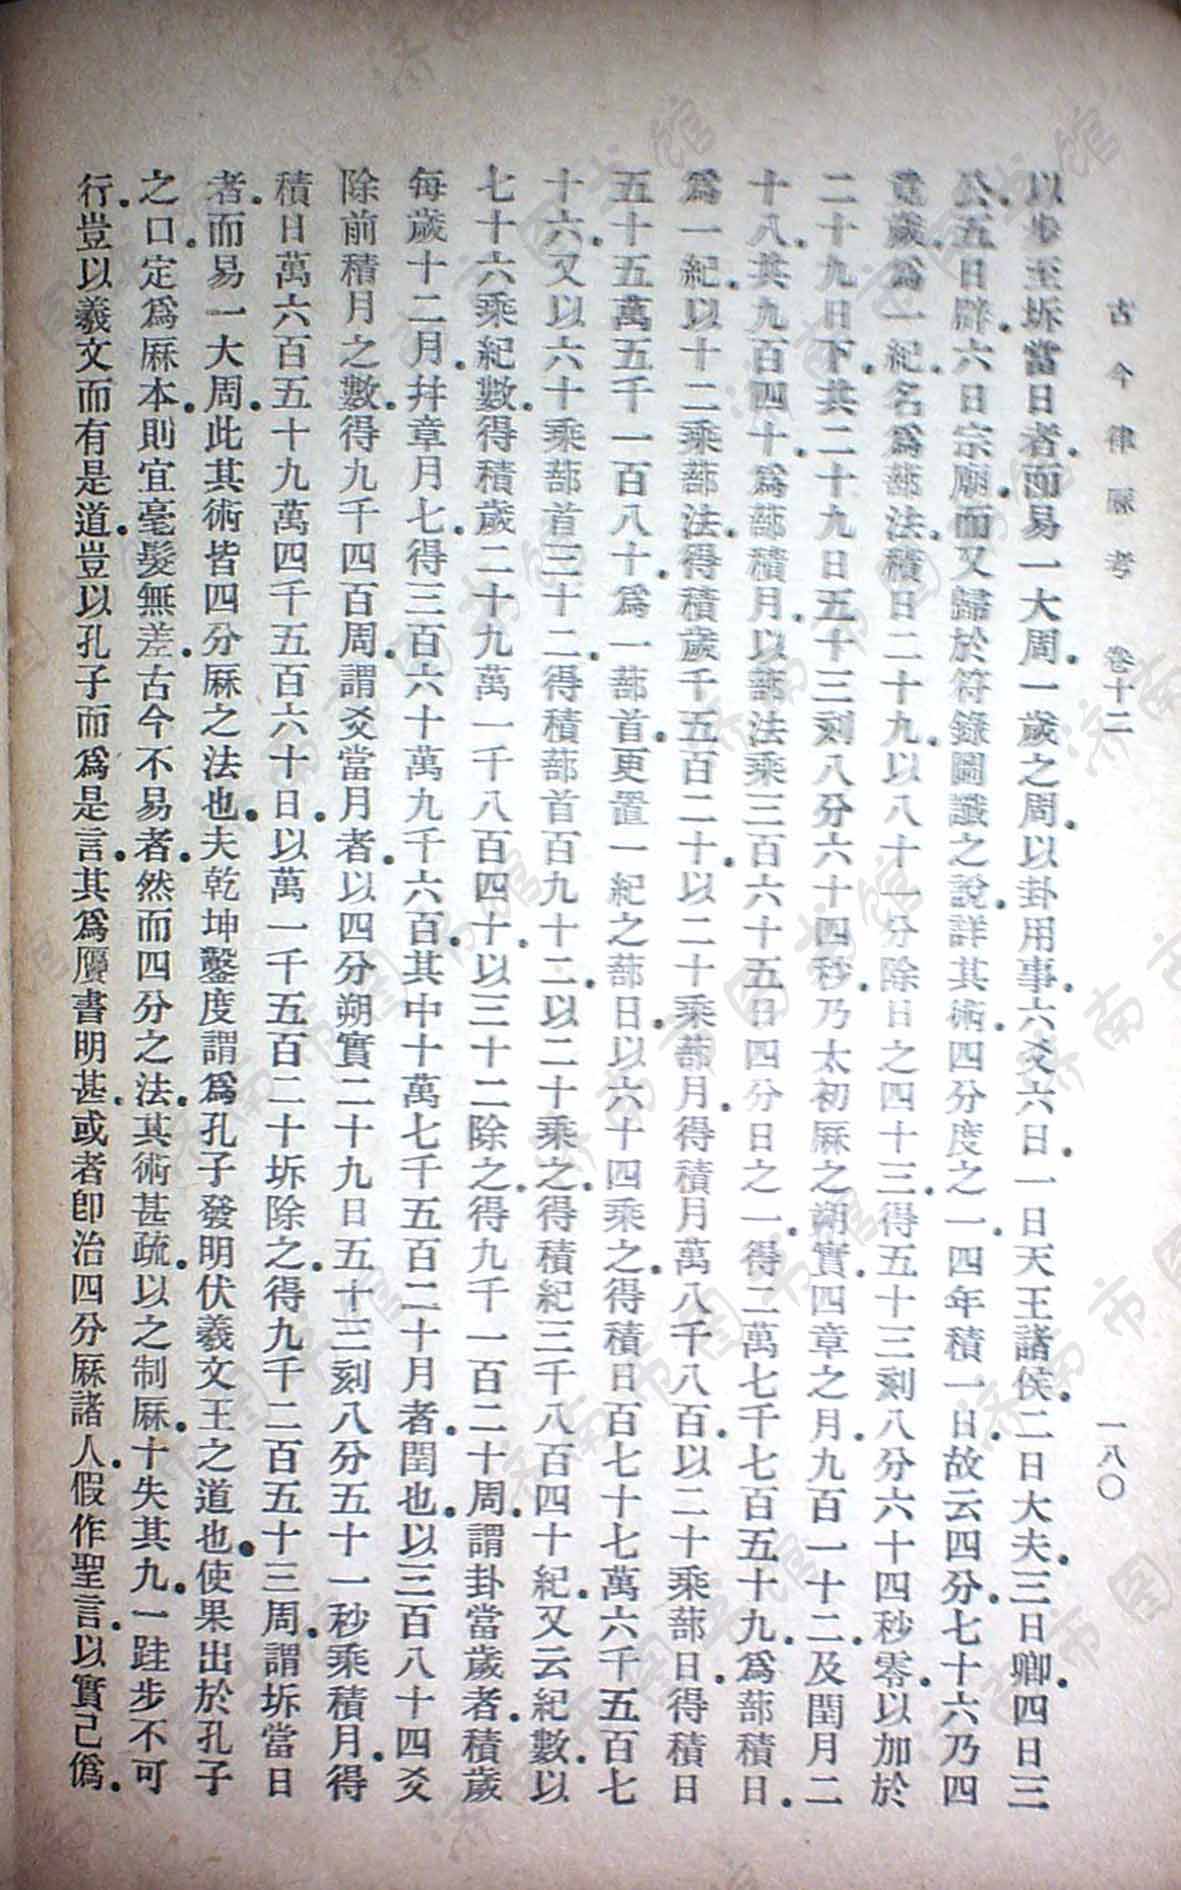 古今律厤考　卷十二　一八〇
以步至坼當日者而易一大周一歲之周以卦用事六爻六日一日天王諸侯二日大夫三日卿四日三
公五日辟六日宗廟而又歸於符錄圖讖之說詳其術四分度之一四年積一日故云四分七十六乃四
章歲爲一紀名爲蔀法積日二十九以八十一分除日之四十三得五十三刻八分六十四秒零以加於
二十九日下共二十九日五十三刻八分六十四秒乃太初厤之朔實四章之月九百一十二及閏月二
十八共九百四十爲蔀積月以蔀法乘三百六十五日四分日之一得二萬七千七百五十九爲蔀積日
爲一紀以十二乘蔀法得積歲千五百二十以二十乘蔀月得積月萬八千八百以二十乘蔀日得積日
五十五萬五千一百八十爲一蔀首更置一紀之蔀日以六十四乘之得積日百七十七萬六千五百七
十六又以六十乘蔀首三十二得積蔀首百九十二以二十乘之得積紀三千八百四十紀又云紀數以
七十六乘紀數得積歲二十九萬一千八百四十以三十二除之得九千一百二十周謂卦當歲者積歲
每歲十二月幷章月七得三百六十萬九千六百其中十萬七千五百二十月者閏也以三百八十四爻
除前積月之數得九千四百周謂爻當月者以四分朔實二十九日五十三刻八分五十一秒乘積月得
積日萬六百五十九萬四千五百六十日以萬一千五百二十坼除之得九千二百五十三周謂坼當日
者而易一大周此其術皆四分厤之法也夫乾坤鑿度謂爲孔子發明伏羲文王之道也使果出於孔子
之口定爲厤本則宜毫髮無差古今不易者然而四分之法其術甚疏以之制厤十失其九一跬步不可
行豈以羲文而有是道豈以孔子而爲是言其爲贗書明甚或者卽治四分厤諸人假作聖言以實己僞